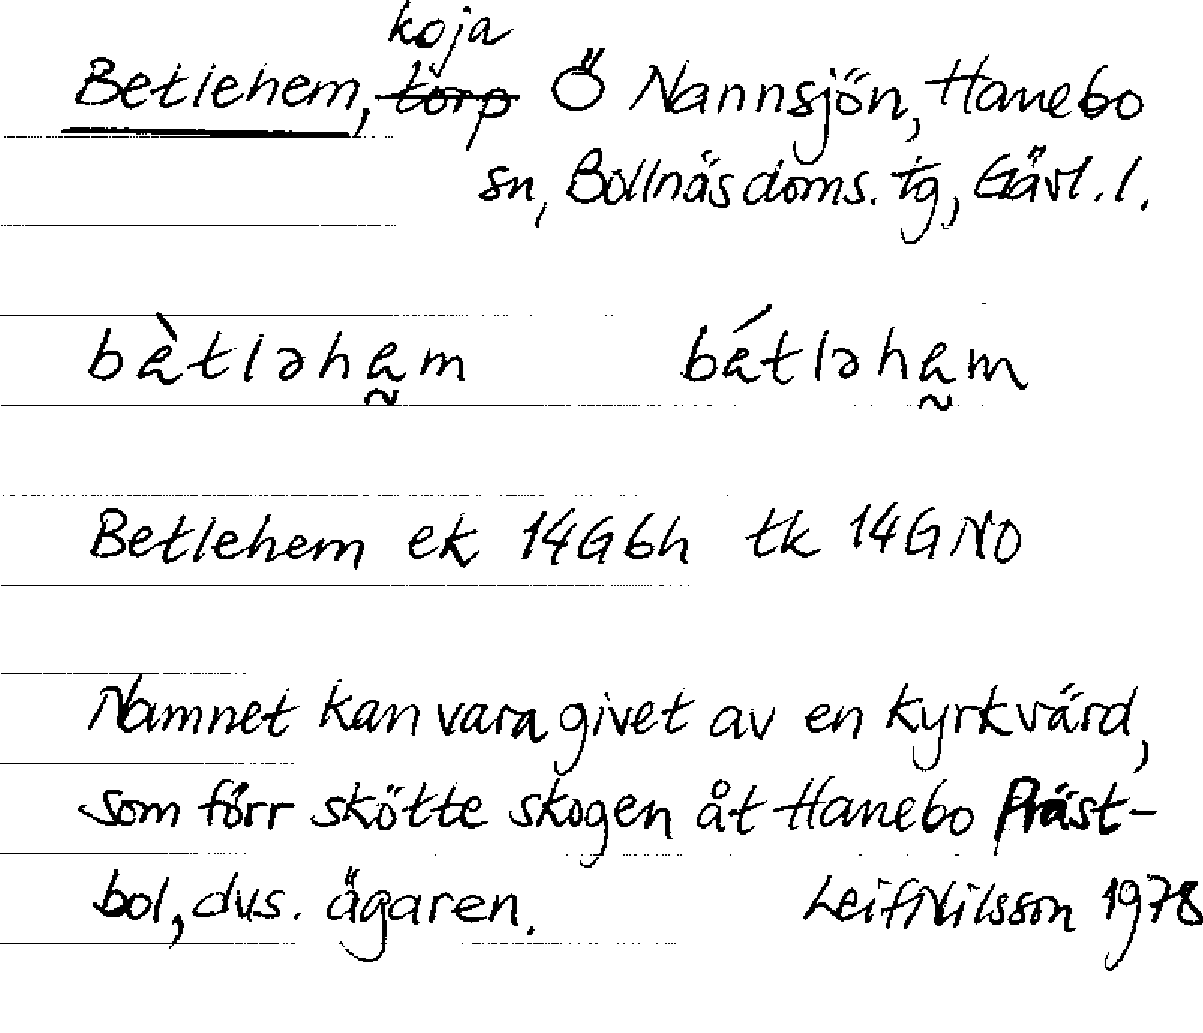 koja
Betlehem, torp Ö Nannsjön, Hanebo
sn, Bollnäs doms. tg, Gävl. l.
bètləham̰ bátləham̰
Betlehem ek 14G6h tk 14GNO
Namnet kan vara givet av en kyrkvärd,
som förr skötte skogen åt Hanebo Präst-
bol, dvs. ägaren. Leif Nilsson 1978